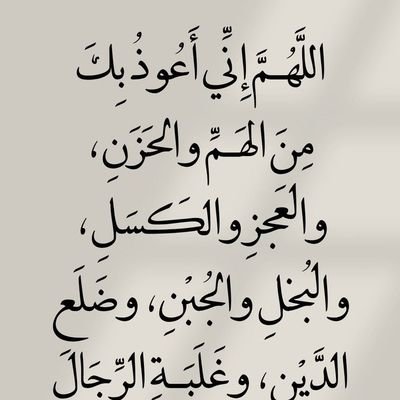 اللَّهُمَّ إِنِّي أَعُوذُ بِكَ
مِنَ الهَمِّ والحَزَنِ،
والعَجزِ والكَسَلِ،
والبُخلِ والجُبْنِ، وضَلَعِ
الدَّيْنِ، وغَلَبَةِ الرِّجَالَ